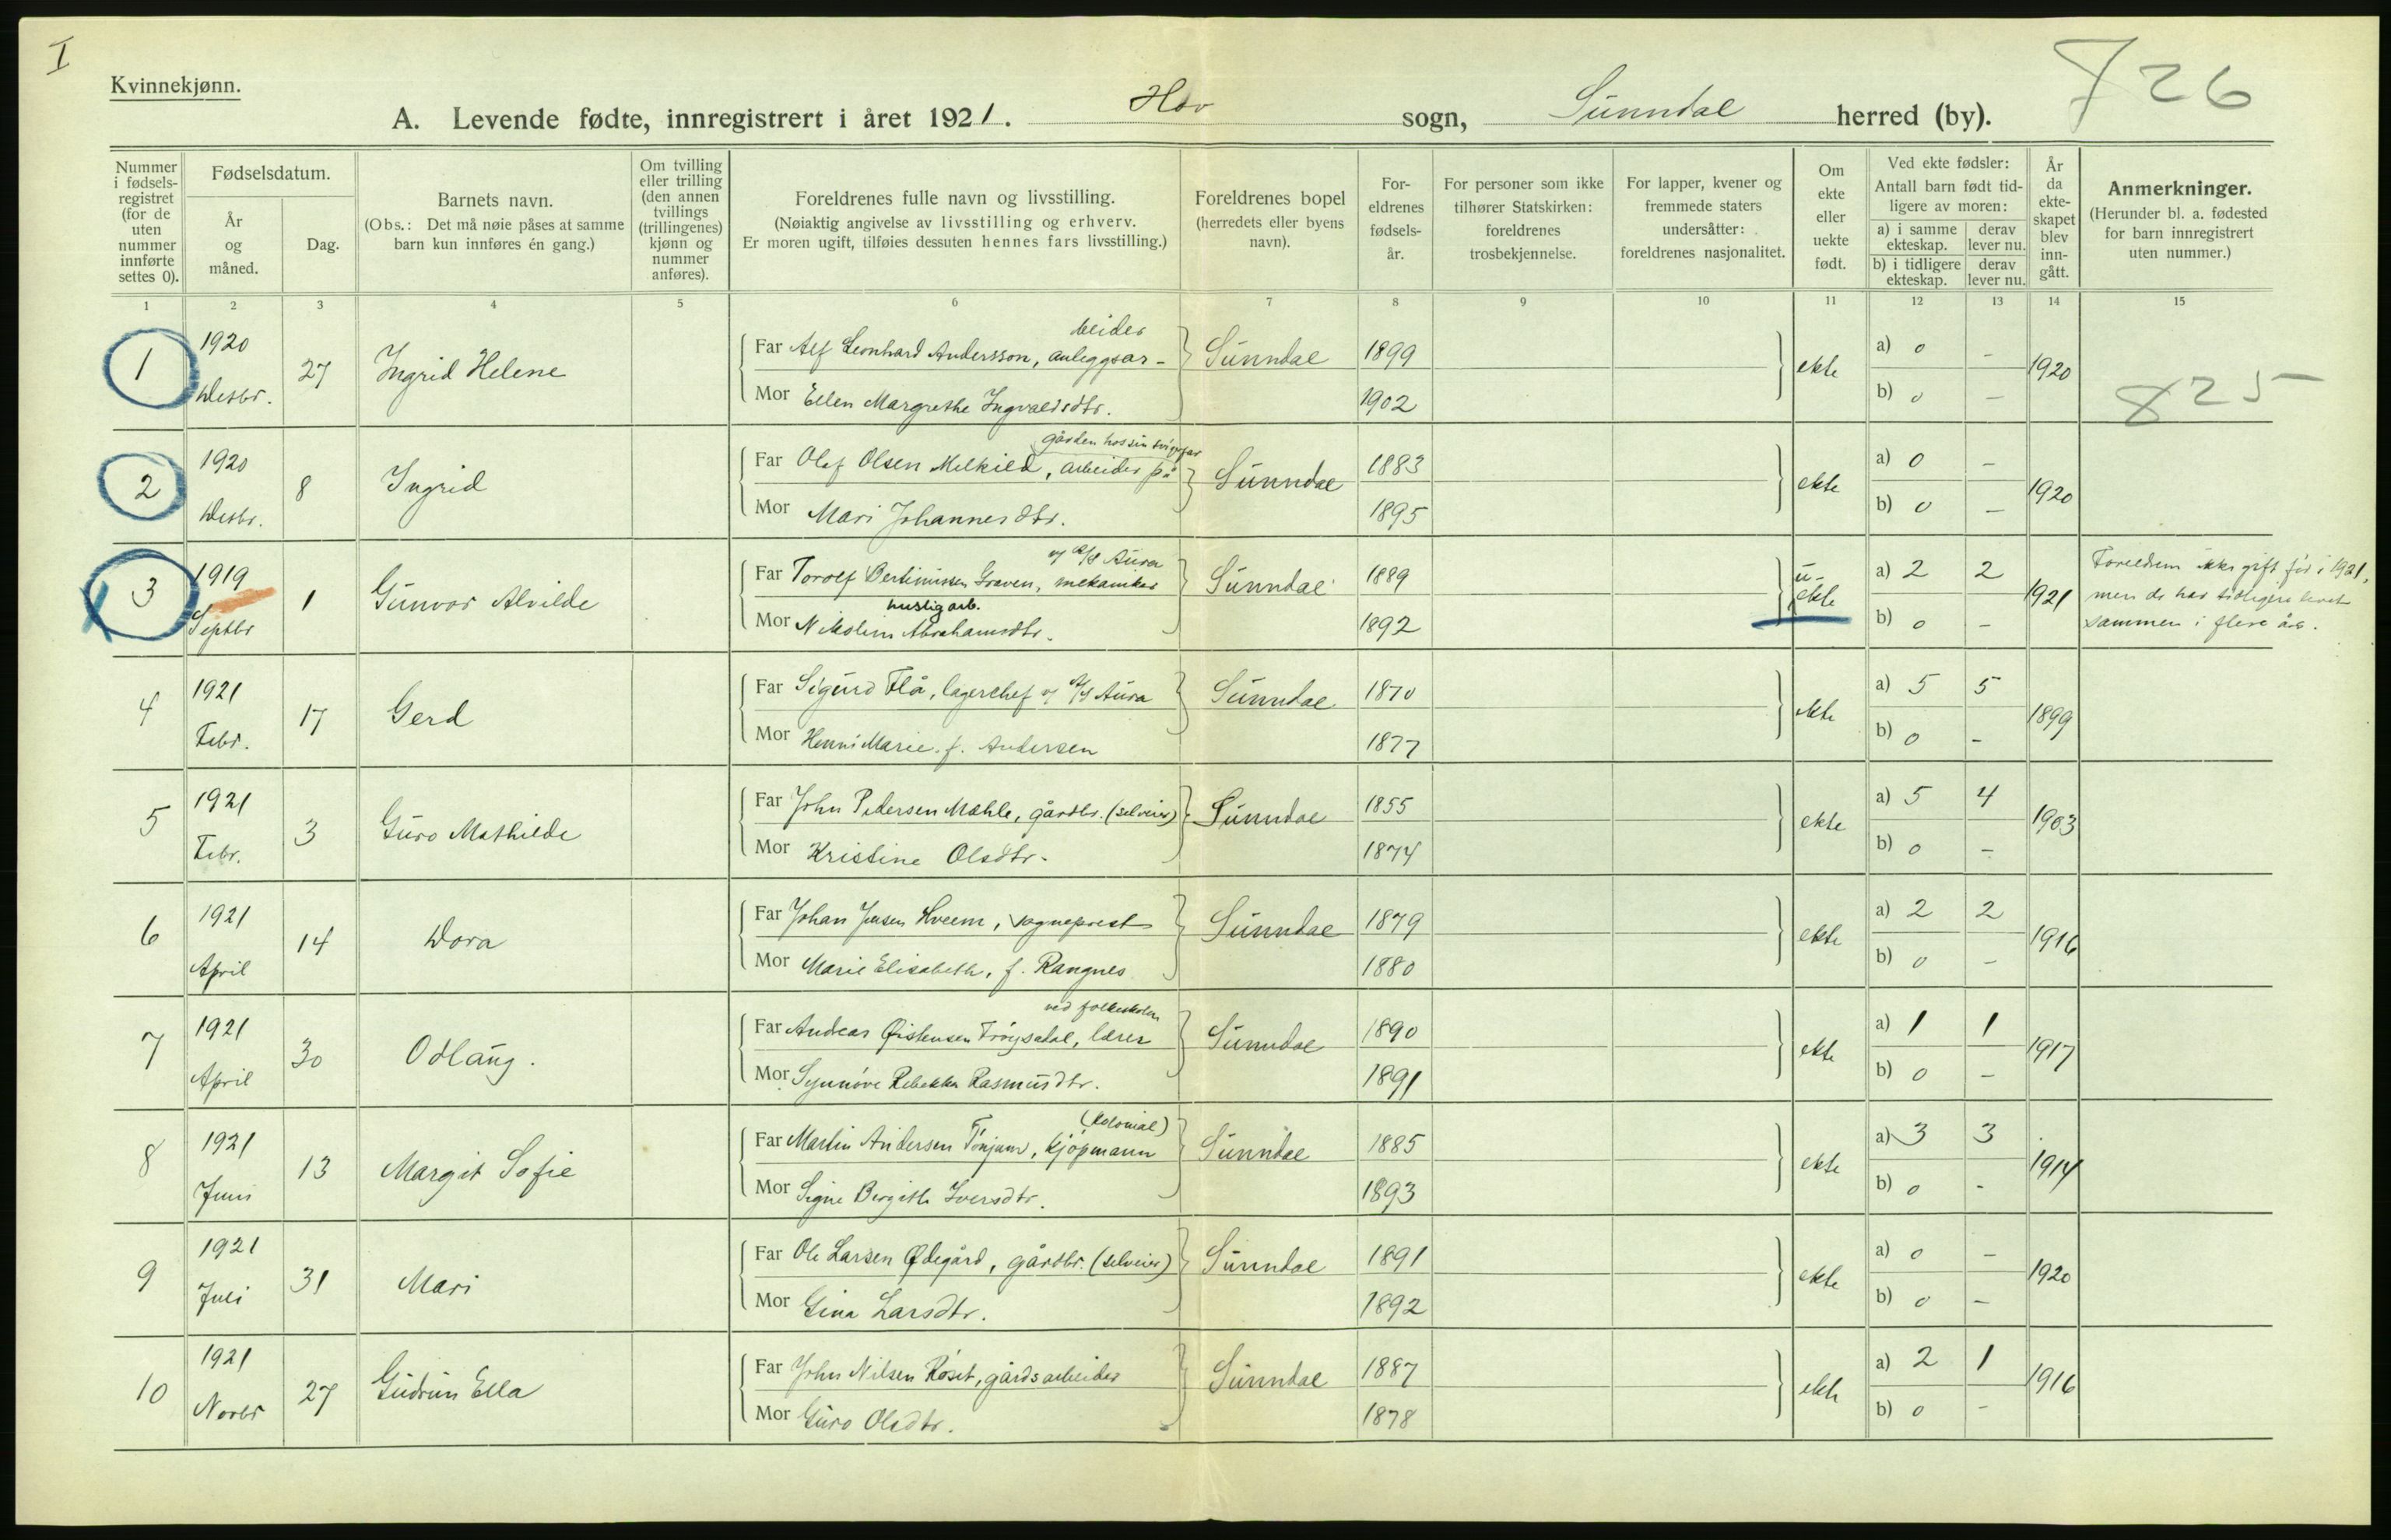 I
826
Kvinnekjønn.
A. Levende fødte, innregistrert i året 1921. Hov sogn, Sunndal herred (by).
Nummer i fødsels-registret (for de uten nummer innførte settes 0).
Fødselsdatum.
År og måned.
Dag.
Barnets navn.
(Obs.: Det må nøie påses at samme barn kun innføres én gang.)
Om tvilling eller trilling (den annen tvillings (trillingenes) kjønn og nummer anføres).
Foreldrenes fulle navn og livsstilling.
(Nøiaktig angivelse av livsstilling og erhverv.
Er moren ugift, tilføies dessuten hennes fars livsstilling.)
Foreldrenes bopel
(herredets eller byens navn).
For-eldrenes fødsels-år.
For personer som ikke tilhører Statskirken: foreldrenes trosbekjennelse.
For lapper, kvener og fremmede staters undersåtter: foreldrenes nasjonalitet.
Om ekte eller uekte født.
Ved ekte fødsler:
Antall barn født tid-ligere av moren:
a) i samme ekteskap.
derav lever nu.
b) i tidligere ekteskap.
derav lever nu.
År da ekte-skapet blev inn-gått.
Anmerkninger.
(Herunder bl. a. fødested for barn innregistrert uten nummer.)
1 2 3 4 5 6 7 8 9 10 11 12 13 14 15
1 1920 Desbr. 27 Ingrid Helene
Far Alf Leonhard Andersson, anleggsar-beider Sunndal 1899 ekte a) 0 - 1920
Mor Ellen Margrethe Ingvaldsdtr. 1902 b) 0 -
825
2 1920 Desbr. 8 Ingrid
Far Olaf Olsen Melkild, arbeider på gården hos sin svigerfar Sunndal 1883 ekte a) 0 - 1920
Mor Mari Johannesdtr. 1895 b) 0 -
3 1919 Septbr 1 Gunvor Alvilde
Far Torolf Bertinussen Graven, mekaniker v/ A/S Aura Sunndal 1889 u-ekte a) 2 2 1921
Mor Nikoline Abrahamsdtr. huslig arb. 1892 b) 0 -
Foreldrene ikke gift før i 1921,
men de har tidligere levet
sammen i flere år.
4 1921 Febr. 17 Gerd
Far Sigurd Flå, lagerchef v/ A/S Aura Sunndal 1870 ekte a) 5 5 1899
Mor Henni Marie f. Andersen 1877 b) 0 -
5 1921 Febr. 3 Guro Mathilde
Far John Pedersen Mæhle, gårdbr. (selveier) Sunndal 1855 ekte a) 5 4 1903
Mor Kristine Olsdtr. 1874 b) 0 -
6 1921 April 14 Dora
Far Johan Jensen Hveem, sogneprest Sunndal 1879 ekte a) 2 2 1916
Mor Marie Elisabeth, f. Rangnes 1880 b) 0 -
7 1921 April 30 Odlaug.
Far Andreas Øistensen, lærer ved folkeskolen Sunndal 1890 ekte a) 1 1 1917
Mor Synnøve Rebekka Rasmusdtr. 1891 b) 0 -
8 1921 Juni 13 Margit Sofie
Far Martin Andersen Tønjum, kjøpmann (kolonial) Sunndal 1885 ekte a) 3 3 1914
Mor Signe Bergith Iversdtr. 1893 b) 0 -
9 1921 Juli 31 Mari
Far Ole Larsen Ødegård, gårdbr. (selveier) Sunndal 1891 ekte a) 0 - 1920
Mor Gina Larsdtr. 1892 b) 0 -
10 1921 Novbr 27 Gudrun Ella
Far John Nilsen Røset, gårdsarbeider Sunndal 1887 ekte a) 2 1 1916
Mor Guro Olsdtr. 1878 b) 0 -